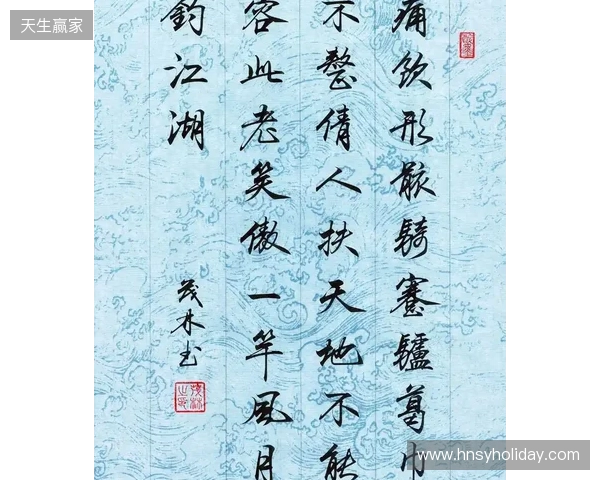 天生赢家
痛飲形骸騎蹇驢葛巾
不整倩人扶天地不能
容此老笑傲一竿風月
釣江湖
茂林书
www.hnsyholiday.com